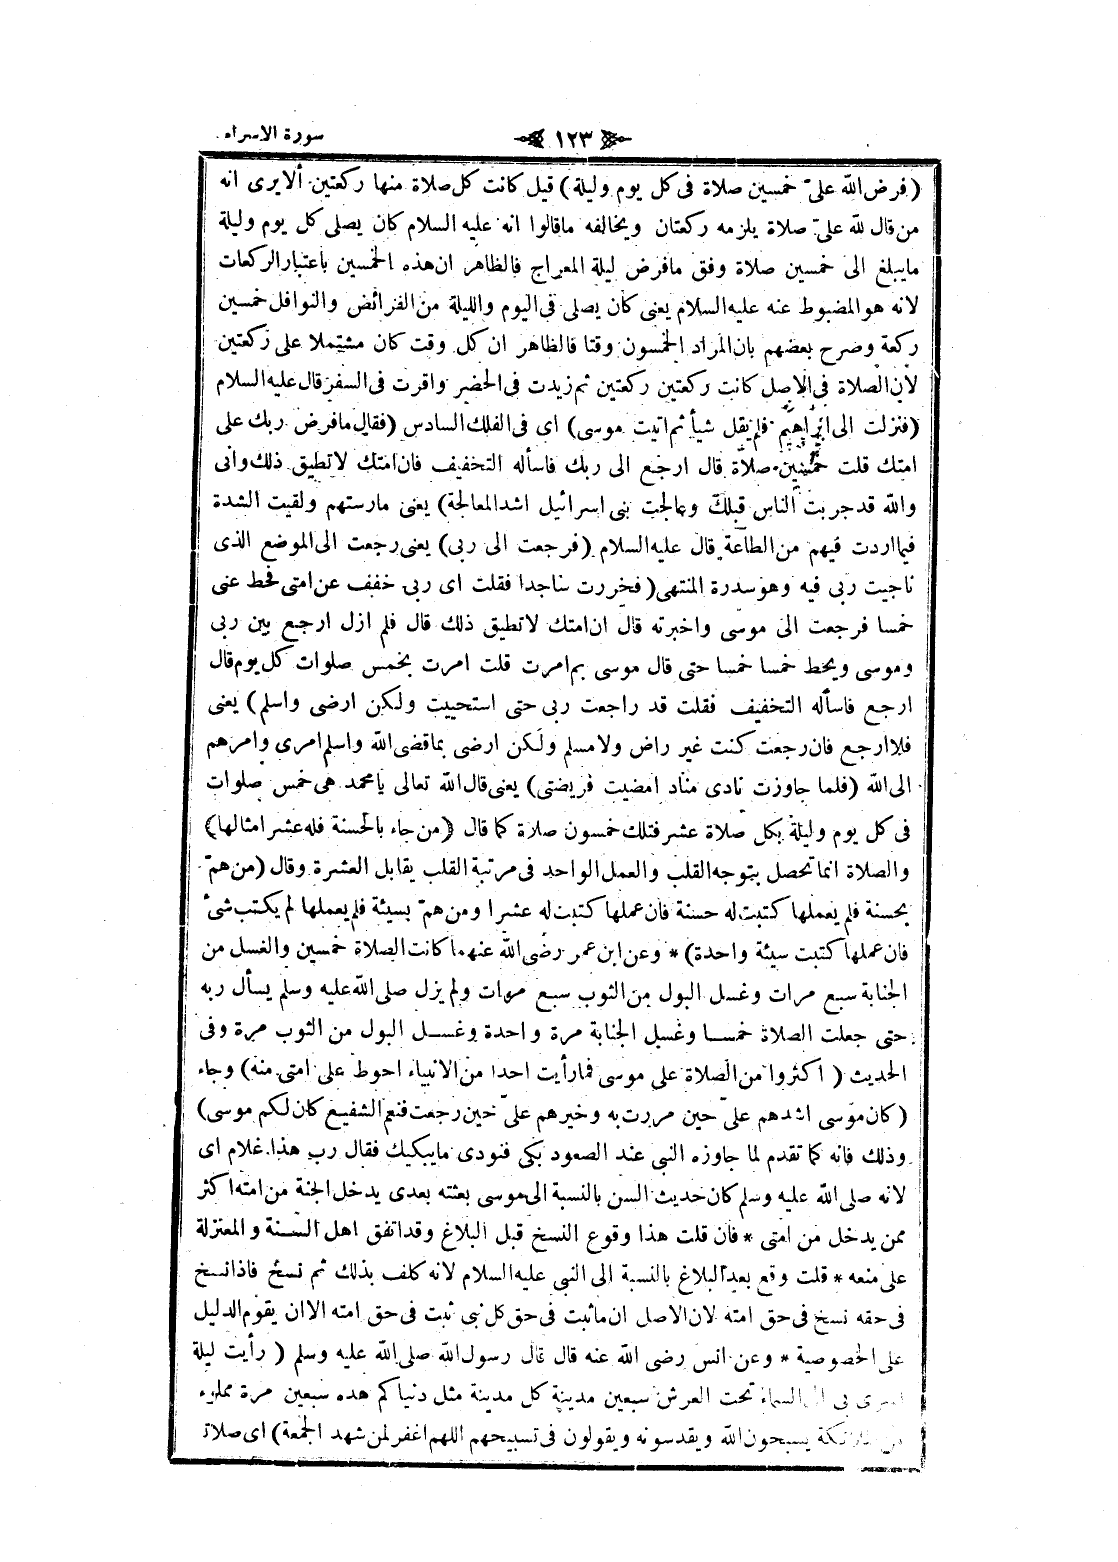 سورة الاسراء
١٢٣
(فرض الله علىّ خمسين صلاة فى كل يوم وليلة) قيل كانت كل صلاة منها ركعتين ألايرى انه
من قال لله علىّ صلاة يلزمه ركعتان ويخالفه ماقالوا انه عليه السلام كان يصلى كل يوم وليلة
مايبلغ الى خمسين صلاة وفق مافرض ليلة المعراج فالظاهر ان هذه الخمسين باعتبار الركعات
لانه هو المضبوط عنه عليه السلام يعنى كان يصلى فى اليوم والليلة من الفرائض والنوافل خمسين
ركعة وصرح بعضهم بان المراد الخمسون وقتا فالظاهر ان كل وقت كان مشتملا على ركعتين
لان الصلاة فى الاصل كانت ركعتين ركعتين ثم زيدت فى الحضر واقرت فى السفر قال عليه السلام
(فنزلت الى ابراهيم فلم يقل شيأ ثم اتيت موسى) اى فى الفلك السادس (فقال مافرض ربك على
امتك قلت خمسين صلاة قال ارجع الى ربك فاسأله التخفيف فان امتك لاتطيق ذلك وانى
والله قد جربت الناس قبلك وعالجت بنى اسرائيل اشد المعالجة) يعنى مارستهم ولقيت الشدة
فيما اردت فيهم من الطاعة قال عليه السلام (فرجعت الى ربى) يعنى رجعت الى الموضع الذى
ناجيت ربى فيه وهو سدرة المنتهى (فخررت ساجدا فقلت اى ربى خفف عن امتى فحط عنى
خمسا فرجعت الى موسى واخبرته قال ان امتك لاتطيق ذلك قال فلم ازل ارجع بين ربى
وموسى ويحط خمسا خمسا حتى قال موسى بم امرت قلت امرت بخمس صلوات كل يوم قال
ارجع فاسأله التخفيف فقلت قد راجعت ربى حتى استحييت ولكن ارضى واسلم) يعنى
فلا ارجع فان رجعت كنت غير راض ولامسلم ولكن ارضى بماقضى الله واسلم امرى وامرهم
الى الله (فلما جاوزت نادى مناد امضيت فريضتى) يعنى قال الله تعالى يامحمد هى خمس صلوات
فى كل يوم وليلة بكل صلاة عشر فتلك خمسون صلاة كما قال (من جاء بالحسنة فله عشر امثالها)
والصلاة انما تحصل بتوجه القلب والعمل الواحد فى مرتبة القلب يقابل العشرة وقال (من همّ
بحسنة فلم يعملها كتبت له حسنة فان عملها كتبت له عشرا ومن همّ بسيئة فلم يعملها لم يكتب شئ
فان عملها كتبت سيئة واحدة) * وعن ابن عمر رضى الله عنهما كانت الصلاة خمسين والغسل من
الجنابة سبع مرات وغسل البول من الثوب سبع مرات ولم يزل صلى الله عليه وسلم يسأل ربه
حتى جعلت الصلاة خمسا وغسل الجنابة مرة واحدة وغسل البول من الثوب مرة وفى
الحديث (اكثروا من الصلاة على موسى فما رأيت احدا من الانبياء احوط على امتى منه) وجاء
(كان موسى اشدهم علىّ حين مررت به وخيرهم علىّ حين رجعت فنعم الشفيع كان لكم موسى)
وذلك فانه كما تقدم لما جاوزه النبى عند الصعود بكى فنودى مايبكيك فقال رب هذا غلام اى
لانه صلى الله عليه وسلم كان حديث السن بالنسبة الى موسى بعثته بعدى يدخل الجنة من امته اكثر
ممن يدخل من امتى * فان قلت هذا وقوع النسخ قبل البلاغ وقد اتفق اهل السنة والمعتزلة
على منعه * قلت وقع بعد البلاغ بالنسبة الى النبى عليه السلام لانه كلف بذلك ثم نسخ فاذا نسخ
فى حقه نسخ فى حق امته لان الاصل ان ماثبت فى حق كل نبى ثبت فى حق امته الا ان يقوم الدليل
على الخصوصية * وعن انس رضى الله عنه قال قال رسول الله صلى الله عليه وسلم (رأيت ليلة
اسرى بى الى السماء تحت العرش سبعين مدينة كل مدينة مثل دنياكم هذه سبعين مرة مملوءة
من الملائكة يسبحون الله ويقدسونه ويقولون فى تسبيحهم اللهم اغفر لمن شهد الجمعة) اى صلاة